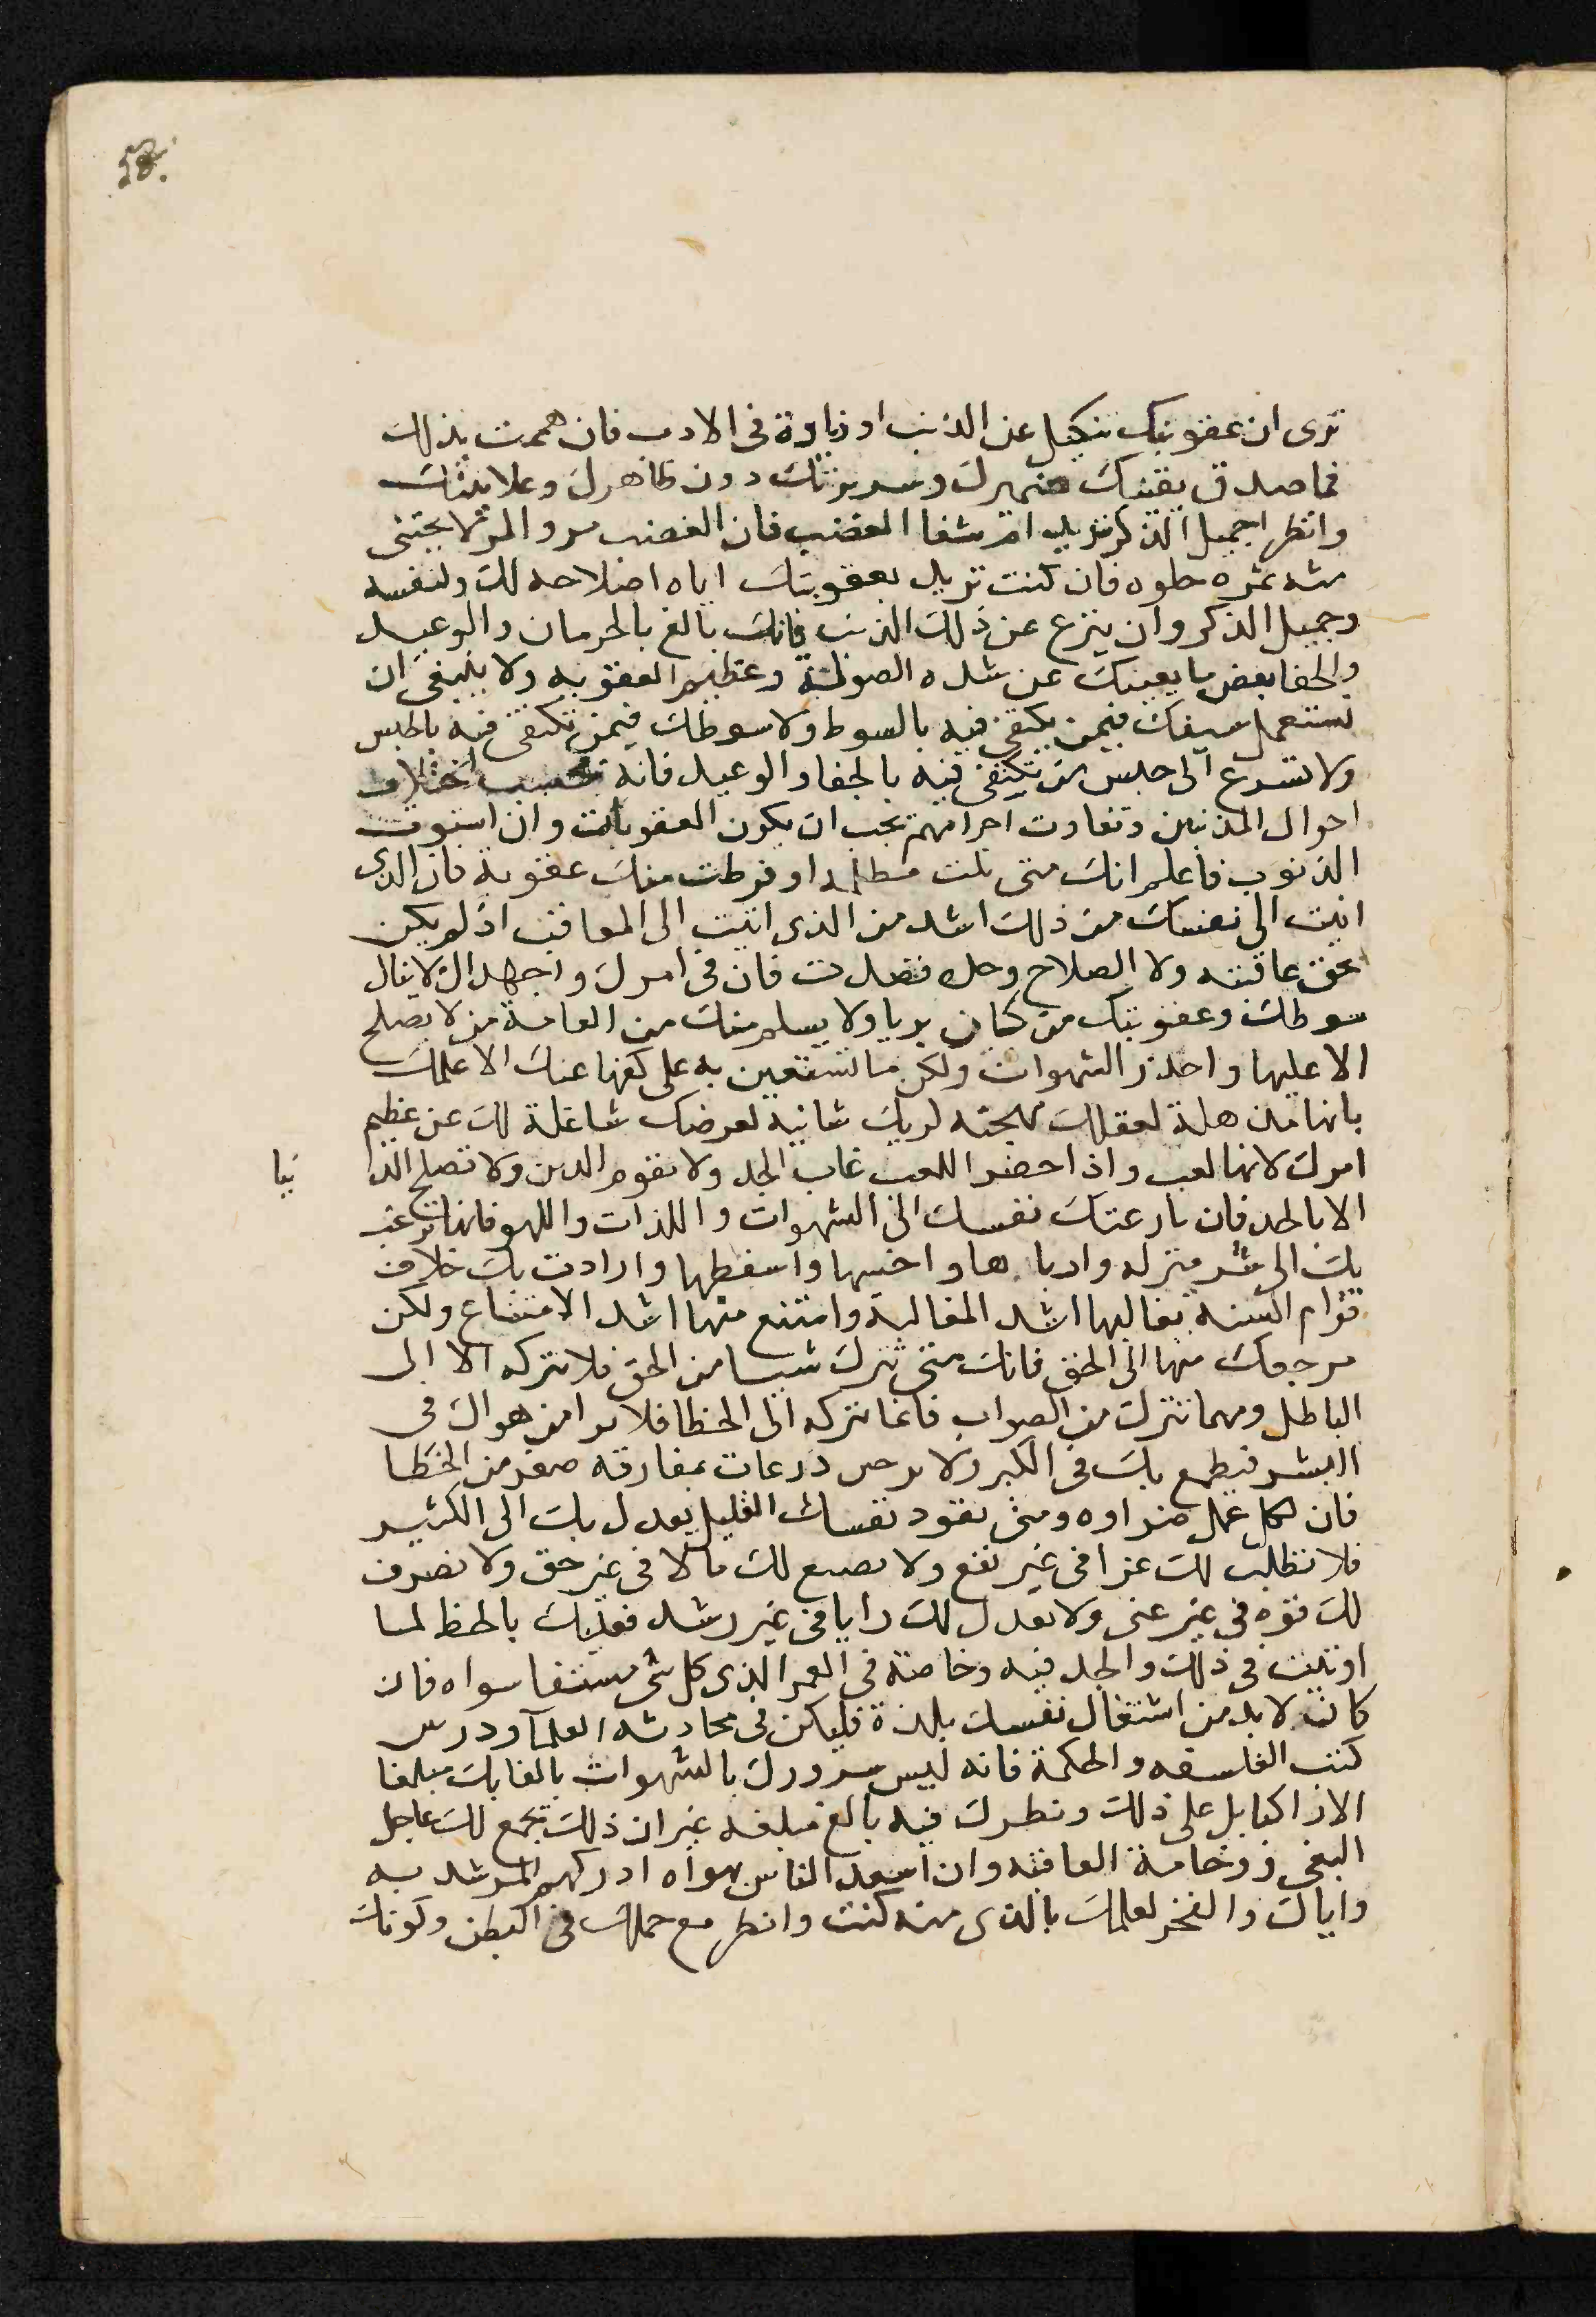 58
ترى ان عقوبتك تنكيل عن الذنب او زيادة فى الادب فان هممت بذلك
فما صدق يقينك ضميرك وسريرتك دون ظاهرك وعلانيتك
وانظر اجميل الذكر تريد ام شفا الغضب فان الغضب مر والمر لا يجتنى
منه ثمره حلوه فان كنت تريد بعقوبتك اياه اصلاحه لك ولنفسه
وجميل الذكر وان ينزع عن ذلك الذنب فانك بالغ بالحرمان والوعيد
والجفا بعض ما يغنيك عن شده الصولة وعظيم العقوبه ولا ينبغى ان
تستعمل سيفك فيمن يكتفى فيه بالسوط ولا سوطك فيمن تكتفى فيه بالحبس
ولا تسرع الى حبس من تكتفى فيه بالجفا والوعيد فانه بحسب اختلاف
احوال المذنبين وتفاوت اجرامهم يجب ان يكون العقوبات وان استوت
الذنوب فاعلم انك متى نلت مظلمه او فرطت منك عقوبة فان الذى
اتيت الى نفسك من ذلك اشد من الذى اتيت الى المعاقب اذ لم يكن
بحق عاقبته ولا الصلاح وحده قصدت فان فى امرك واجهد ان لا ينال
سوطك وعقوبتك من كان بريا ولا يسلم منك من العامة من لا يصلح
الا عليها واحذر الشهوات ولكن ما تستعين به على كفها عنك الا علمك
بانها مذهلة لعقلك مهجنه لريك شانية لعرضك شاغلة لك عن عظيم
امرك لانها لعب واذا حضر اللعب غاب الجد ولا يقوم الدين ولا تصلح الد نيا
الا بالجد فان نازعتك نفسك الى الشهوات واللذات واللهو فانها ترغب
بك الى شر منزله وادناها واخسها واسقطها وارادت بك خلاف
قوام السنه فغالبها اشد المغالبة وامتنع منها اشد الامتناع ولكن
مرجعك منها الى الحق فانك متى تترك شيا من الحق فلا تتركه الا الى
الباطل ومهما تترك من الصواب فانما تتركه الى الخطا فلا هواك فى
فيطمع بك فى الكبر ولا بمفارقه صغر من الخطا
فان لكل عمل ضراوه ومتى تقود نفسك القليل يعدل بك الى الكثير
فلا تطلب لك عزا فى غير نفع ولا تضيع لك مالا فى غير حق ولا تصرف
لك قوه فى غير عنى ولا تعدل لك رايا فى غير رشد فعليك بالحفظ لما
اوتيت فى ذلك والجد فيه وخاصة فى العمر الذى كل شى مستفا سواه فان
كان لا بد من اشتغال نفسك بلذة فليكن فى محادثه العلمآ ودرس
كتب الفلسفه والحكمة فانه ليس سرورك بالشهوات بالغا بك مبلغا
الا على ذلك ونظرك فيه بالغ مبلغه غير ان ذلك يجمع لك عاجل
الغى ووخامة العاقبه وان اسعد الناس ادركهم المرشد به
واياك والفخر لعلمك بالذى منه كنت وانظر مع حملك فى البطن وكونك